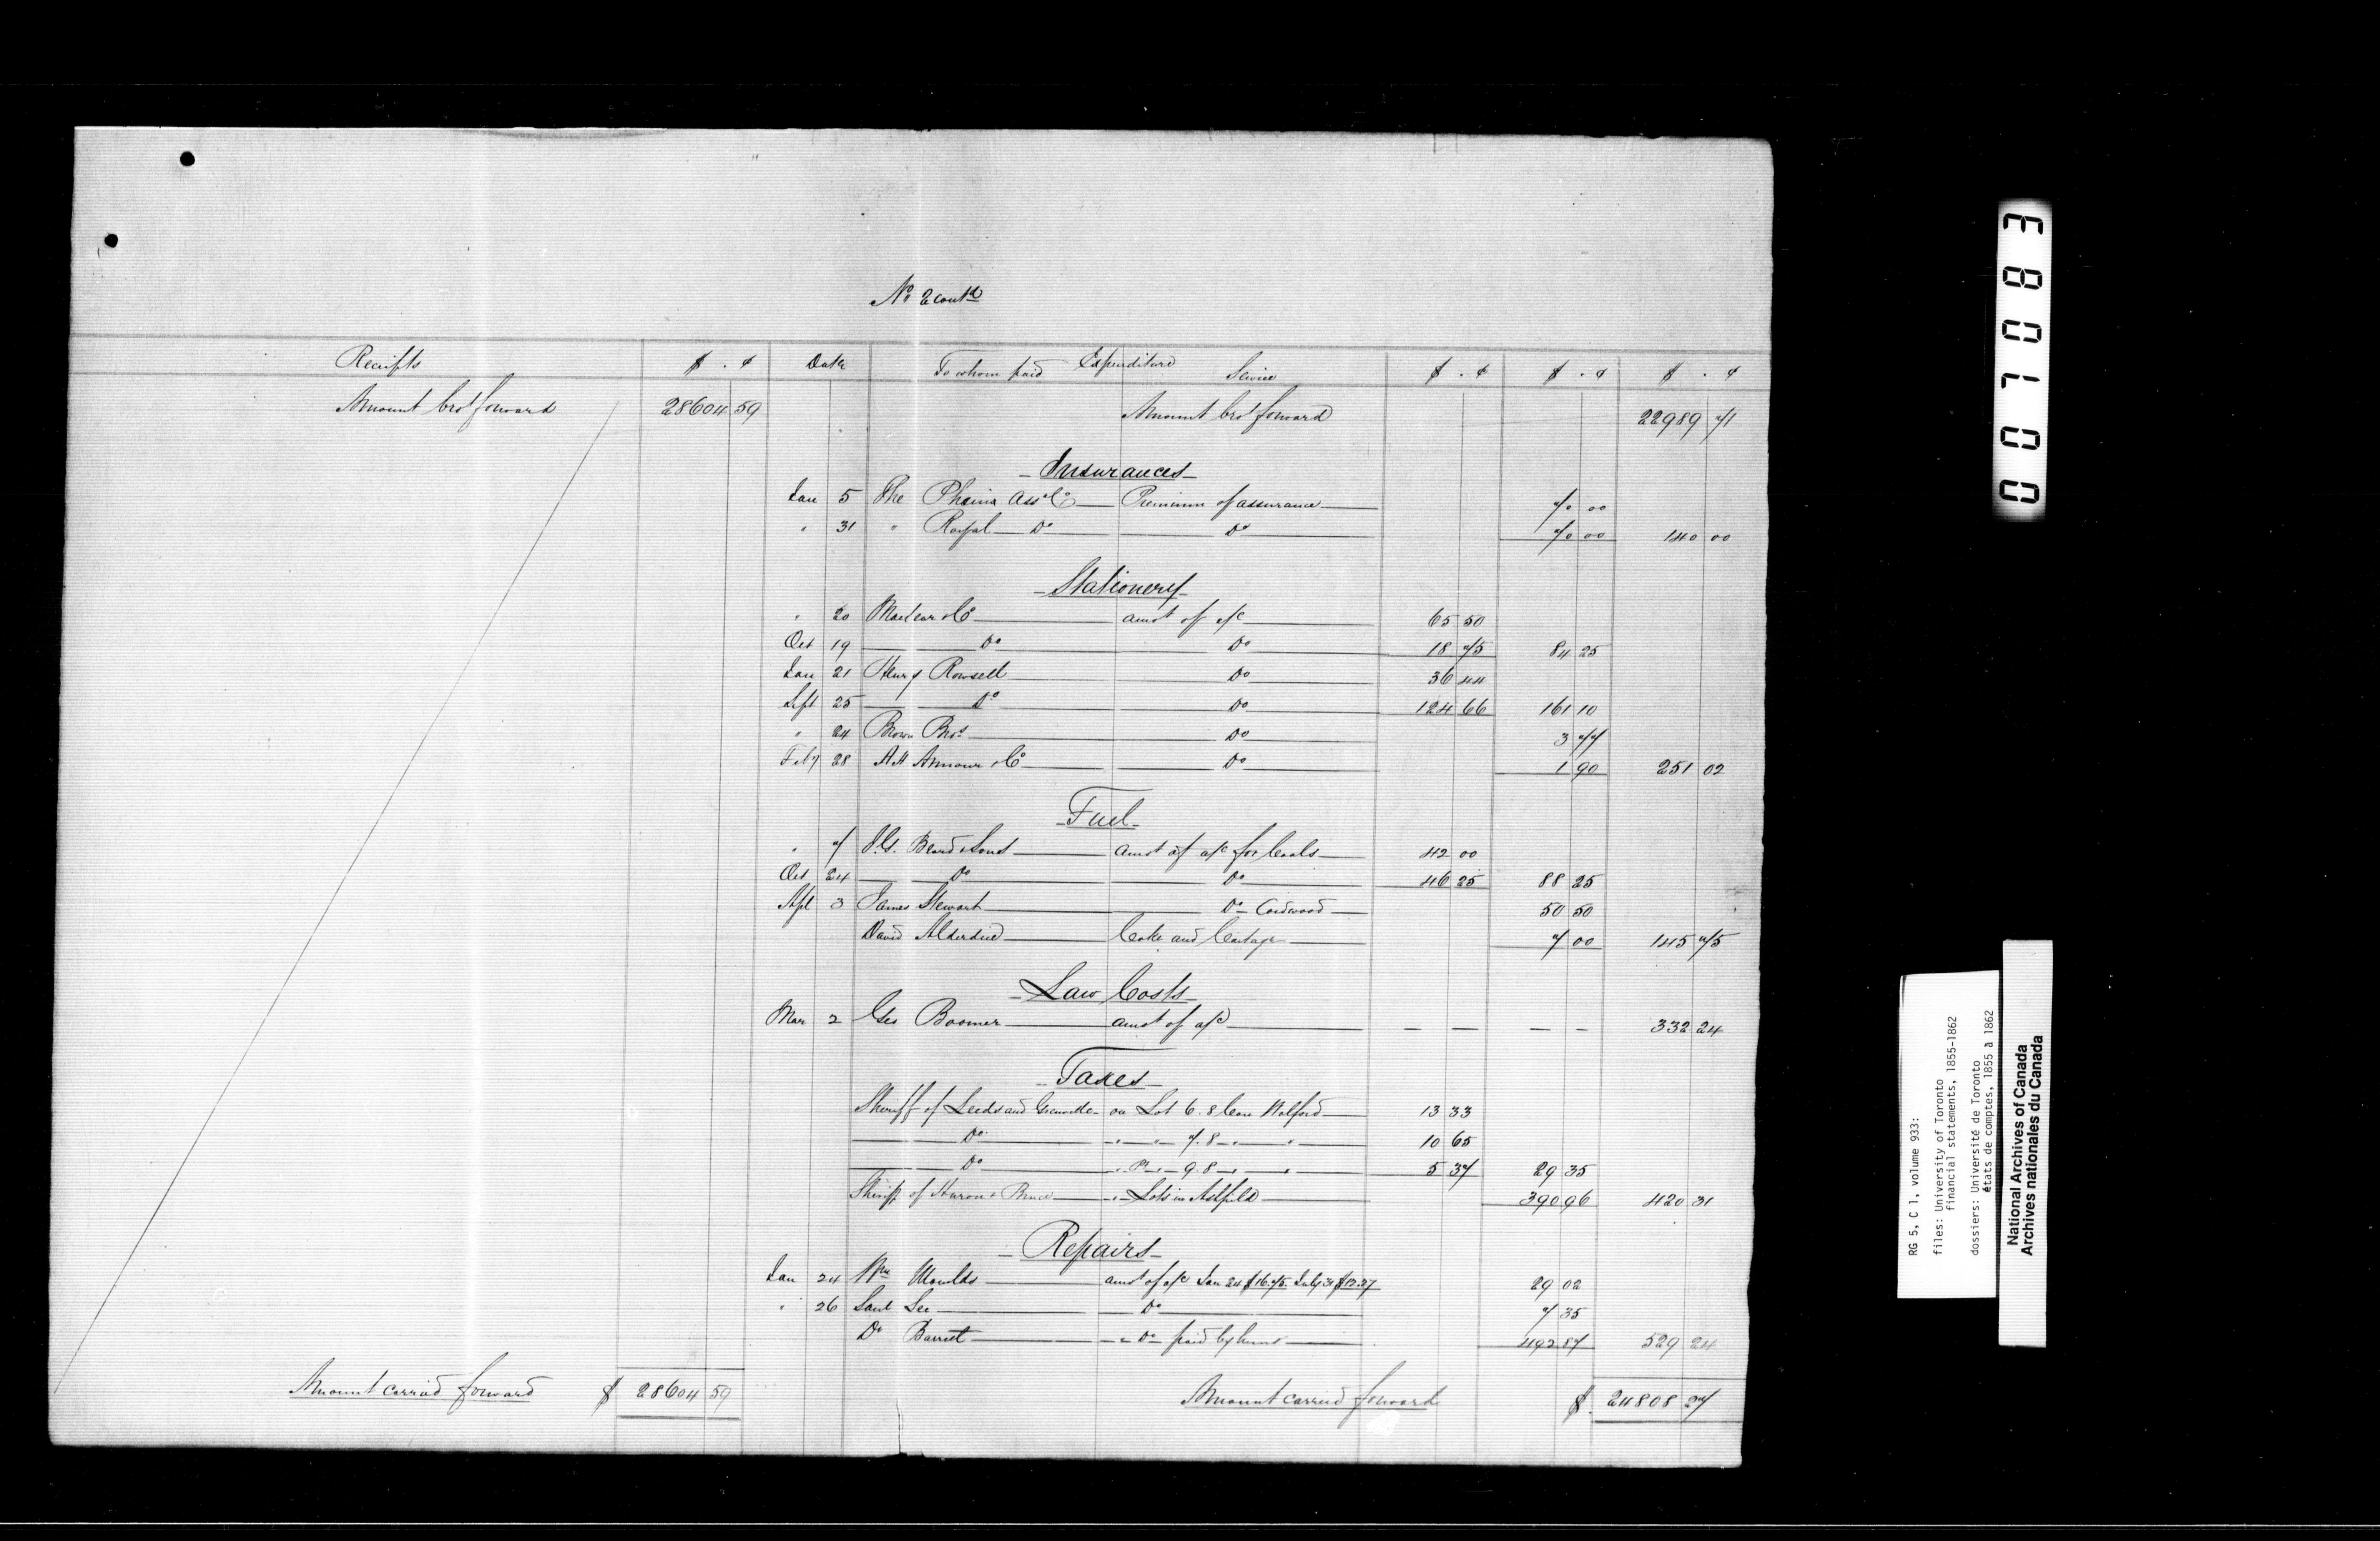 No 2 contd
Receipts $ . ¢ Date To whom paid Expenditure Service $ . ¢ $ . ¢ $ . ¢
Amount brot forward 28604 59 Amount brot forward 22989 71
- Insurances -
Jan 5 The Phœnix Assce Co Premium of assurance 70 00
" 31 " Royal Do Do 70 00 140 00
- Stationery -
" 20 Maclear & Co amot of a/c 65 50
Oct 19 Do Do 18 75 84 25
Jan 21 Henry Rowsell Do 36 44
Sept 25 Do Do 124 66 161 10
" 24 Brown Bros Do 3 77
Feby 28 A H Armour & Co Do 1 90 251 02
- Fuel -
" 7 J.G. Beard & Sons amot of a/c for Coals 42 00
Oct 24 Do Do 46 25 88 25
Apl 3 James Stewart Do - Cordwood 50 50
David Coke and Cartage 7 00 145 75
- Law Costs -
Mar 2 Geo Boomer amot of a/c — — — — 332 24
- Taxes -
Sheriff of Leeds and Grenville - on Lot 6. 8 Con Wolford 13 33
Do " " 7. 8 " " 10 65
Do " Pt " 9. 8 " " 5 37 29 35
Sheriff of Huron & Bruce " Lots in Ashfield 390 96 420 31
- Repairs -
Jan 24 Wm Moulds amot of a/c Jan 24 $16.75 July 31 $12.27 29 02
" 26 Saml Lee Do 7 35
Do Barret " Do paid by 492 87 529 24
Amount carried forward $ 28604 59 Amount carried forward $ 24808 27
007083
RG 5, C 1, volume 933:
files: University of Toronto
financial statements, 1855-1862
dossiers: Université de Toronto
états de comptes, 1855 à 1862
National Archives of Canada
Archives nationales du Canada